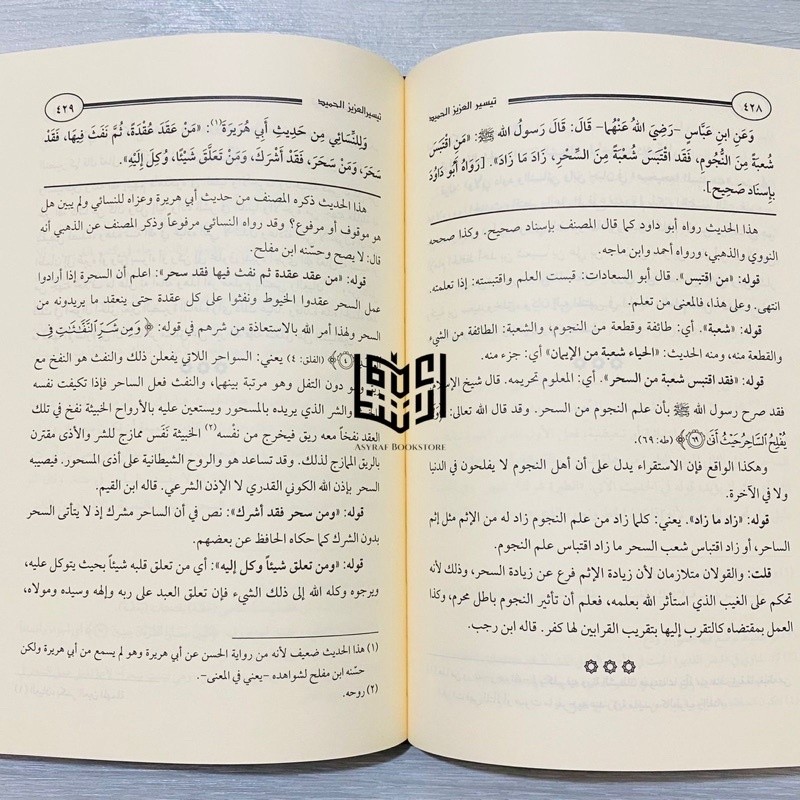 ٤٢٨
تيسير العزيز الحميد
وَعَنِ ابنِ عَبَّاسٍ -رَضِيَ اللهُ عَنْهُما- قَالَ: قَالَ رَسولُ اللهِ ﷺ: «مَنِ اقْتَبَسَ
شُعبَةً مِنَ النُّجُومِ، فَقَد اقْتَبَسَ شُعْبَةً مِنَ السِّحْرِ، زَادَ مَا زَادَ». [رَوَاهُ أَبو دَاوُدَ
بِإسنَادٍ صَحِيحٍ].
هذا الحديث رواه أبو داود كما قال المصنف بإسناد صحيح. وكذا صححه
النووي والذهبي، ورواه أحمد وابن ماجه.
قوله: «من اقتبس». قال أبو السعادات: قبست العلم واقتبسته: إذا تعلمته.
انتهى. وعلى هذا، فالمعنى من تعلم.
قوله: «شعبة». أي: طائفة وقطعة من النجوم، والشعبة: الطائفة من الشيء
والقطعة منه، ومنه الحديث: «الحياء شعبة من الإيمان» أي: جزء منه.
قوله: «فقد اقتبس شعبة من السحر». أي: المعلوم تحريمه. قال شيخ
فقد صرح رسول الله ﷺ بأن علم النجوم من السحر. وقد قال الله تعالى:
يُفْلِحُ ٱلسَّاحِرُ حَيْثُ أَتَىٰ ۝٦٩﴾ (طه: ٦٩).
وهكذا الواقع فإن الاستقراء يدل على أن أهل النجوم لا يفلحون في الدنيا
ولا في الآخرة.
قوله: «زاد ما زاد». يعني: كلما زاد من علم النجوم زاد له من الإثم مثل إثم
الساحر، أو زاد اقتباس شعب السحر ما زاد اقتباس علم النجوم.
قلت: والقولان متلازمان لأن زيادة الإثم فرع عن زيادة السحر، وذلك لأنه
تحكم على الغيب الذي استأثر الله بعلمه، فعلم أن تأثير النجوم باطل محرم، وكذا
العمل بمقتضاه كالتقرب إليها بتقريب القرابين لها كفر. قاله ابن رجب.
تيسير العزيز الحميد
٤٢٩
وَلِلنَّسائِي مِن حَدِيثِ أَبِي هُرَيرَةَ(١): «مَنْ عَقَدَ عُقْدَةً، ثُمَّ نَفَثَ فِيهَا، فَقَدْ
سَحَرَ، وَمَنْ سَحَرَ، فَقَدْ أَشْرَكَ، وَمَنْ تَعَلَّقَ شَيْئًا، وُكِلَ إِلَيْهِ».
هذا الحديث ذكره المصنف من حديث أبي هريرة وعزاه للنسائي ولم يبين هل
هو موقوف أو مرفوع؟ وقد رواه النسائي مرفوعاً وذكر المصنف عن الذهبي أنه
قال: لا يصح وحسّنه ابن مفلح.
قوله: «من عقد عقدة ثم نفث فيها فقد سحر»: اعلم أن السحرة إذا أرادوا
عمل السحر عقدوا الخيوط ونفثوا على كل عقدة حتى ينعقد ما يريدونه من
السحر ولهذا أمر الله بالاستعاذة من شرهم في قوله: ﴿وَمِن شَرِّ ٱلنَّفَّـٰثَـٰتِ فِي
(الفلق: ٤) يعني: السواحر اللاتي يفعلن ذلك والنفث هو النفخ مع
دون التفل وهو مرتبة بينهما، والنفث فعل الساحر فإذا تكيفت نفسه
والشر الذي يريده بالمسحور ويستعين عليه بالأرواح الخبيثة نفخ في تلك
العقد نفخاً معه ريق فيخرج من نفْسه(٢) الخبيثة نَفَس ممازج للشر والأذى مقترن
بالريق الممازج لذلك. وقد تساعد هو والروح الشيطانية على أذى المسحور. فيصيبه
السحر بإذن الله الكوني القدري لا الإذن الشرعي. قاله ابن القيم.
قوله: «ومن سحر فقد أشرك»: نص في أن الساحر مشرك إذ لا يتأتى السحر
بدون الشرك كما حكاه الحافظ عن بعضهم.
قوله: «ومن تعلق شيئاً وكل إليه»: أي من تعلق قلبه شيئاً بحيث يتوكل عليه،
ويرجوه وكله الله إلى ذلك الشيء فإن تعلق العبد على ربه وإلهه وسيده ومولاه،
(١) هذا الحديث ضعيف لأنه من رواية الحسن عن أبي هريرة وهو لم يسمع من أبي هريرة ولكن
حسنه ابن مفلح لشواهده -يعني في المعنى-.
(٢) روحه.
ASYRAF BOOKSTORE